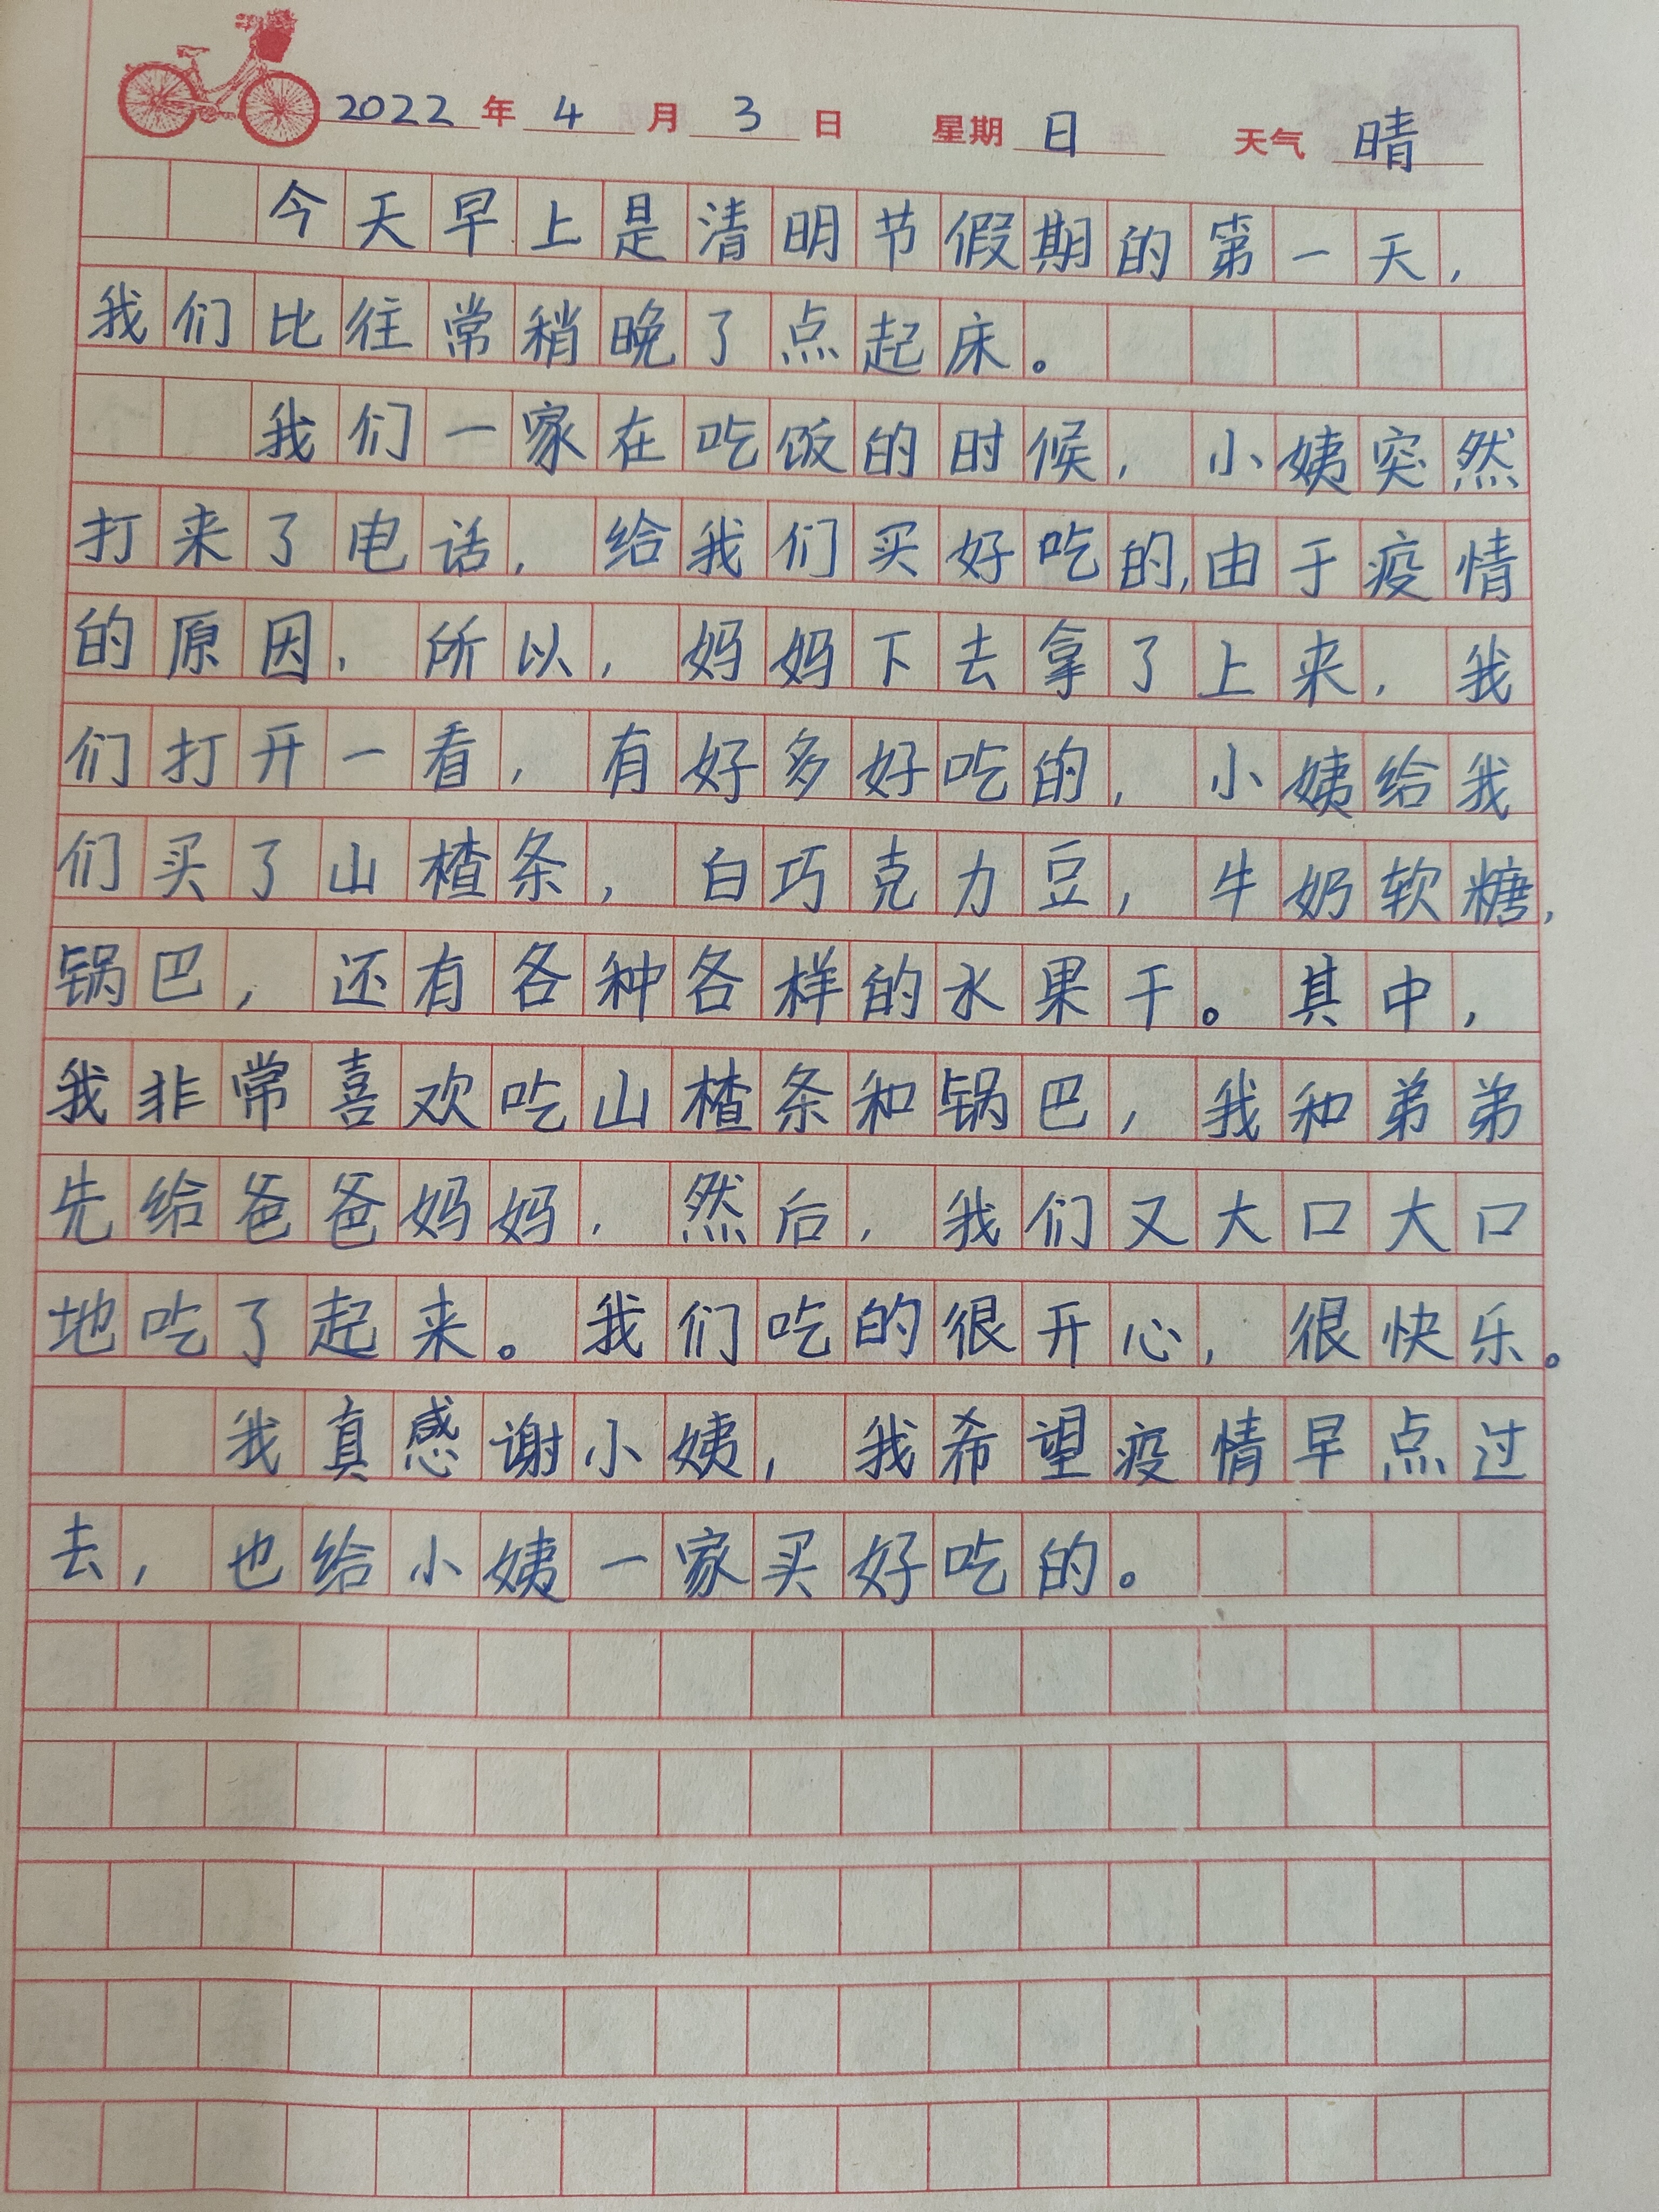 2022年4月3日 星期日 天气晴
今天早上是清明节假期的第一天，
我们比往常稍晚了点起床。
我们一家在吃饭的时候，小姨突然
打来了电话，给我们买好吃的,由于疫情
的原因，所以，妈妈下去拿了上来，我
们打开一看，有好多好吃的，小姨给我
们买了山楂条，白巧克力豆，牛奶软糖，
锅巴，还有各种各样的水果干。其中，
我非常喜欢吃山楂条和锅巴，我和弟弟
先给爸爸妈妈，然后，我们又大口大口
地吃了起来。我们吃的很开心，很快乐。
我真感谢小姨，我希望疫情早点过
去，也给小姨一家买好吃的。